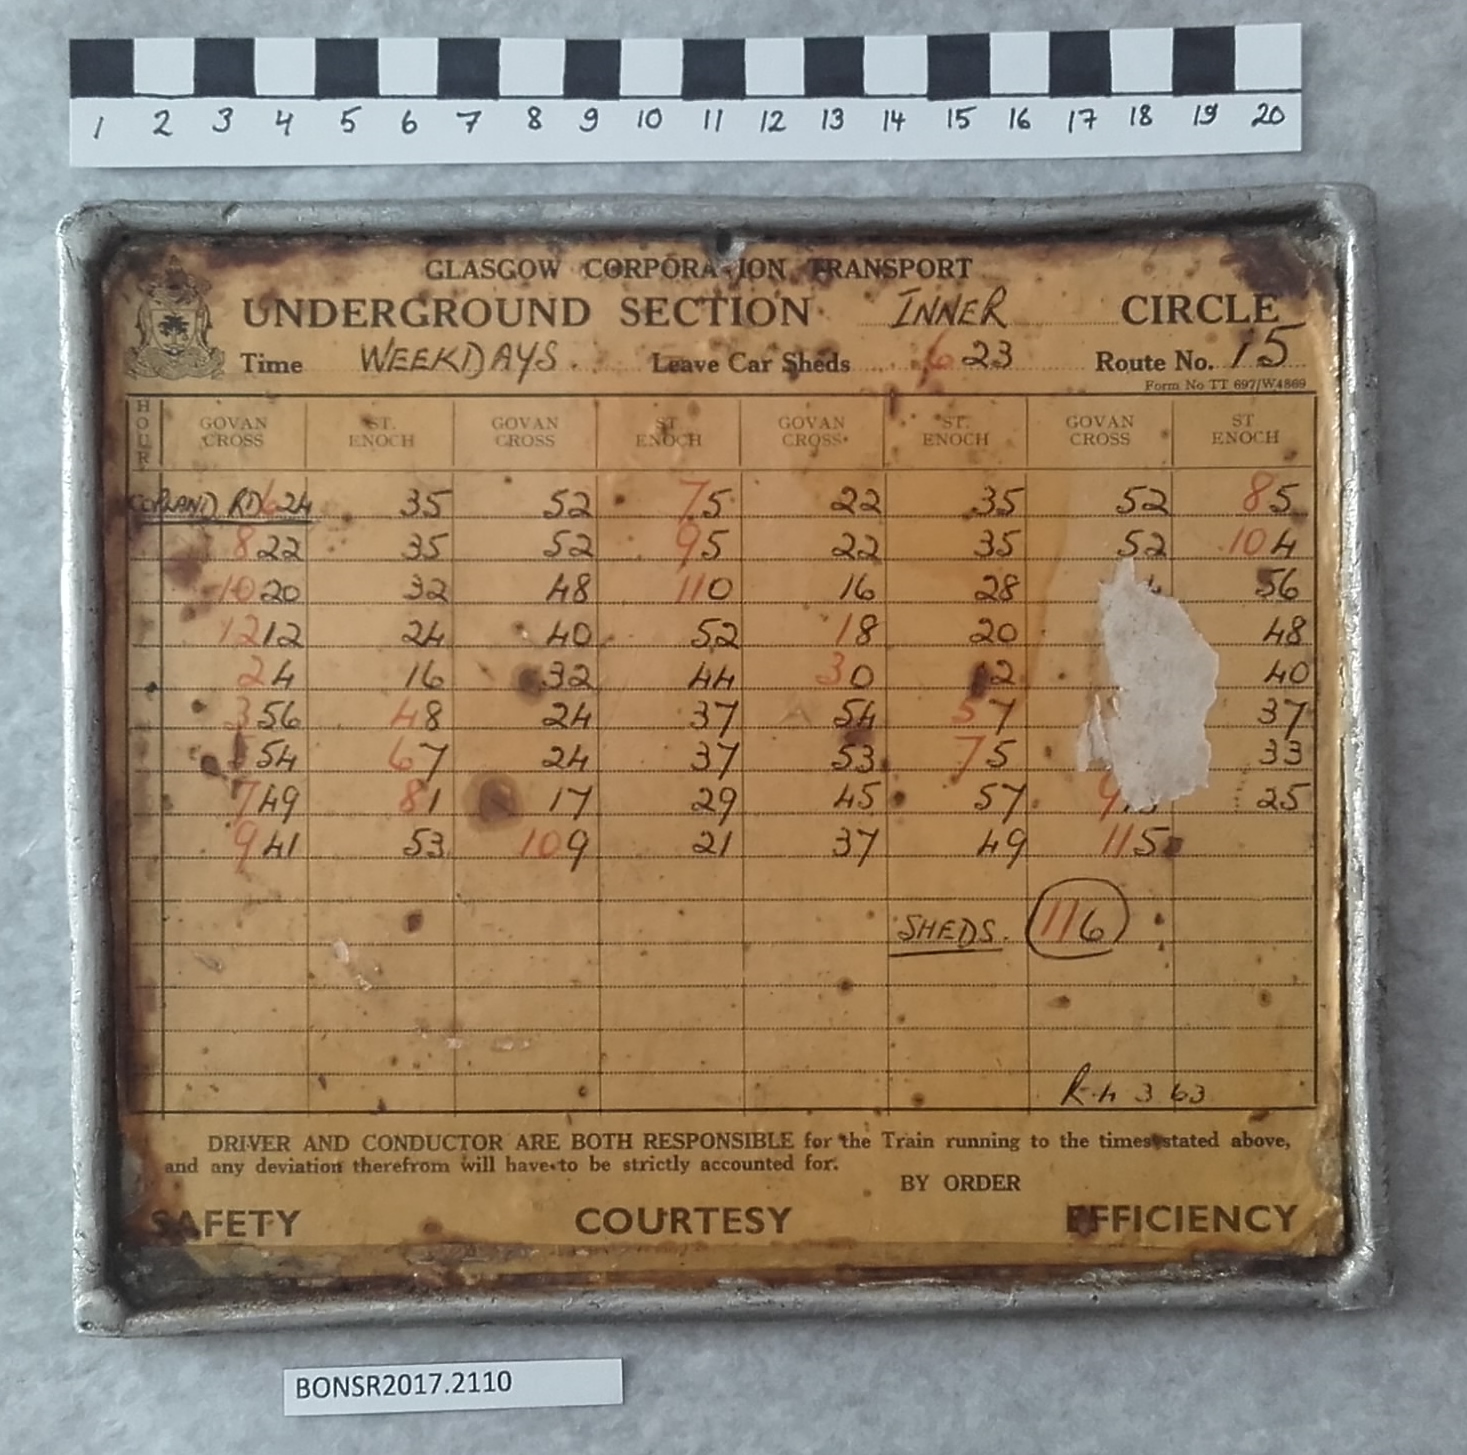 1 2 3 4 5 6 7 8 9 10 11 12 13 14 15 16 17 18 19 20
GLASGOW CORPORA ION TRANSPORT
UNDERGROUND SECTION INNER CIRCLE
Time WEEKDAYS. Leave Car Sheds 6 23 Route No. 15
Form No TT 697/W4869
HOUR GOVAN CROSS ST. ENOCH GOVAN CROSS ST. ENOCH GOVAN CROSS ST. ENOCH GOVAN CROSS ST ENOCH
COPLAND RD 6 24 35 52 7 5 22 35 52 8 5
8 22 35 52 9 5 22 35 52 10 4
10 20 32 48 11 0 16 28 56
12 12 24 40 52 1 8 20 48
2 4 16 32 44 3 0 12 40
3 56 4 8 24 37 54 5 7 37
54 6 7 24 37 53 7 5 33
7 49 8 1 17 29 45 57 9 25
9 41 53 10 9 21 37 49 11 5
SHEDS. 11 6
R-h 3 63
DRIVER AND CONDUCTOR ARE BOTH RESPONSIBLE for the Train running to the times stated above,
and any deviation therefrom will have to be strictly accounted for.
BY ORDER
SAFETY COURTESY EFFICIENCY
BONSR2017.2110